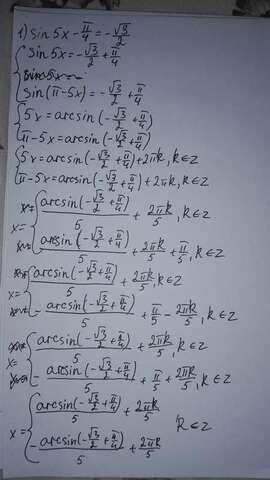 1) sin 5x - π/4 = -√3/2
sin 5x = -√3/2 + π/4
sin(π-5x) = -√3/2 + π/4
5x = arcsin(-√3/2 + π/4)
π-5x = arcsin(-√3/2 + π/4)
5x = arcsin(-√3/2 + π/4) + 2πk, k∈Z
π-5x = arcsin(-√3/2 + π/4) + 2πk, k∈Z
x = { arcsin(-√3/2 + π/4)/5 + 2πk/5, k∈Z
arcsin(-√3/2 + π/4)/5 + 2πk/5 + π/5, k∈Z
x = { arcsin(-√3/2 + π/4)/5 + 2πk/5, k∈Z
-arcsin(-√3/2 + π/4)/5 + π/5 - 2πk/5, k∈Z
x = { arcsin(-√3/2 + π/4)/5 + 2πk/5, k∈Z
-arcsin(-√3/2 + π/4)/5 + π/5 + 2πk/5, k∈Z
x = { arcsin(-√3/2 + π/4)/5 + 2πk/5 k∈Z
-arcsin(-√3/2 + π/4)/5 + 2πk/5